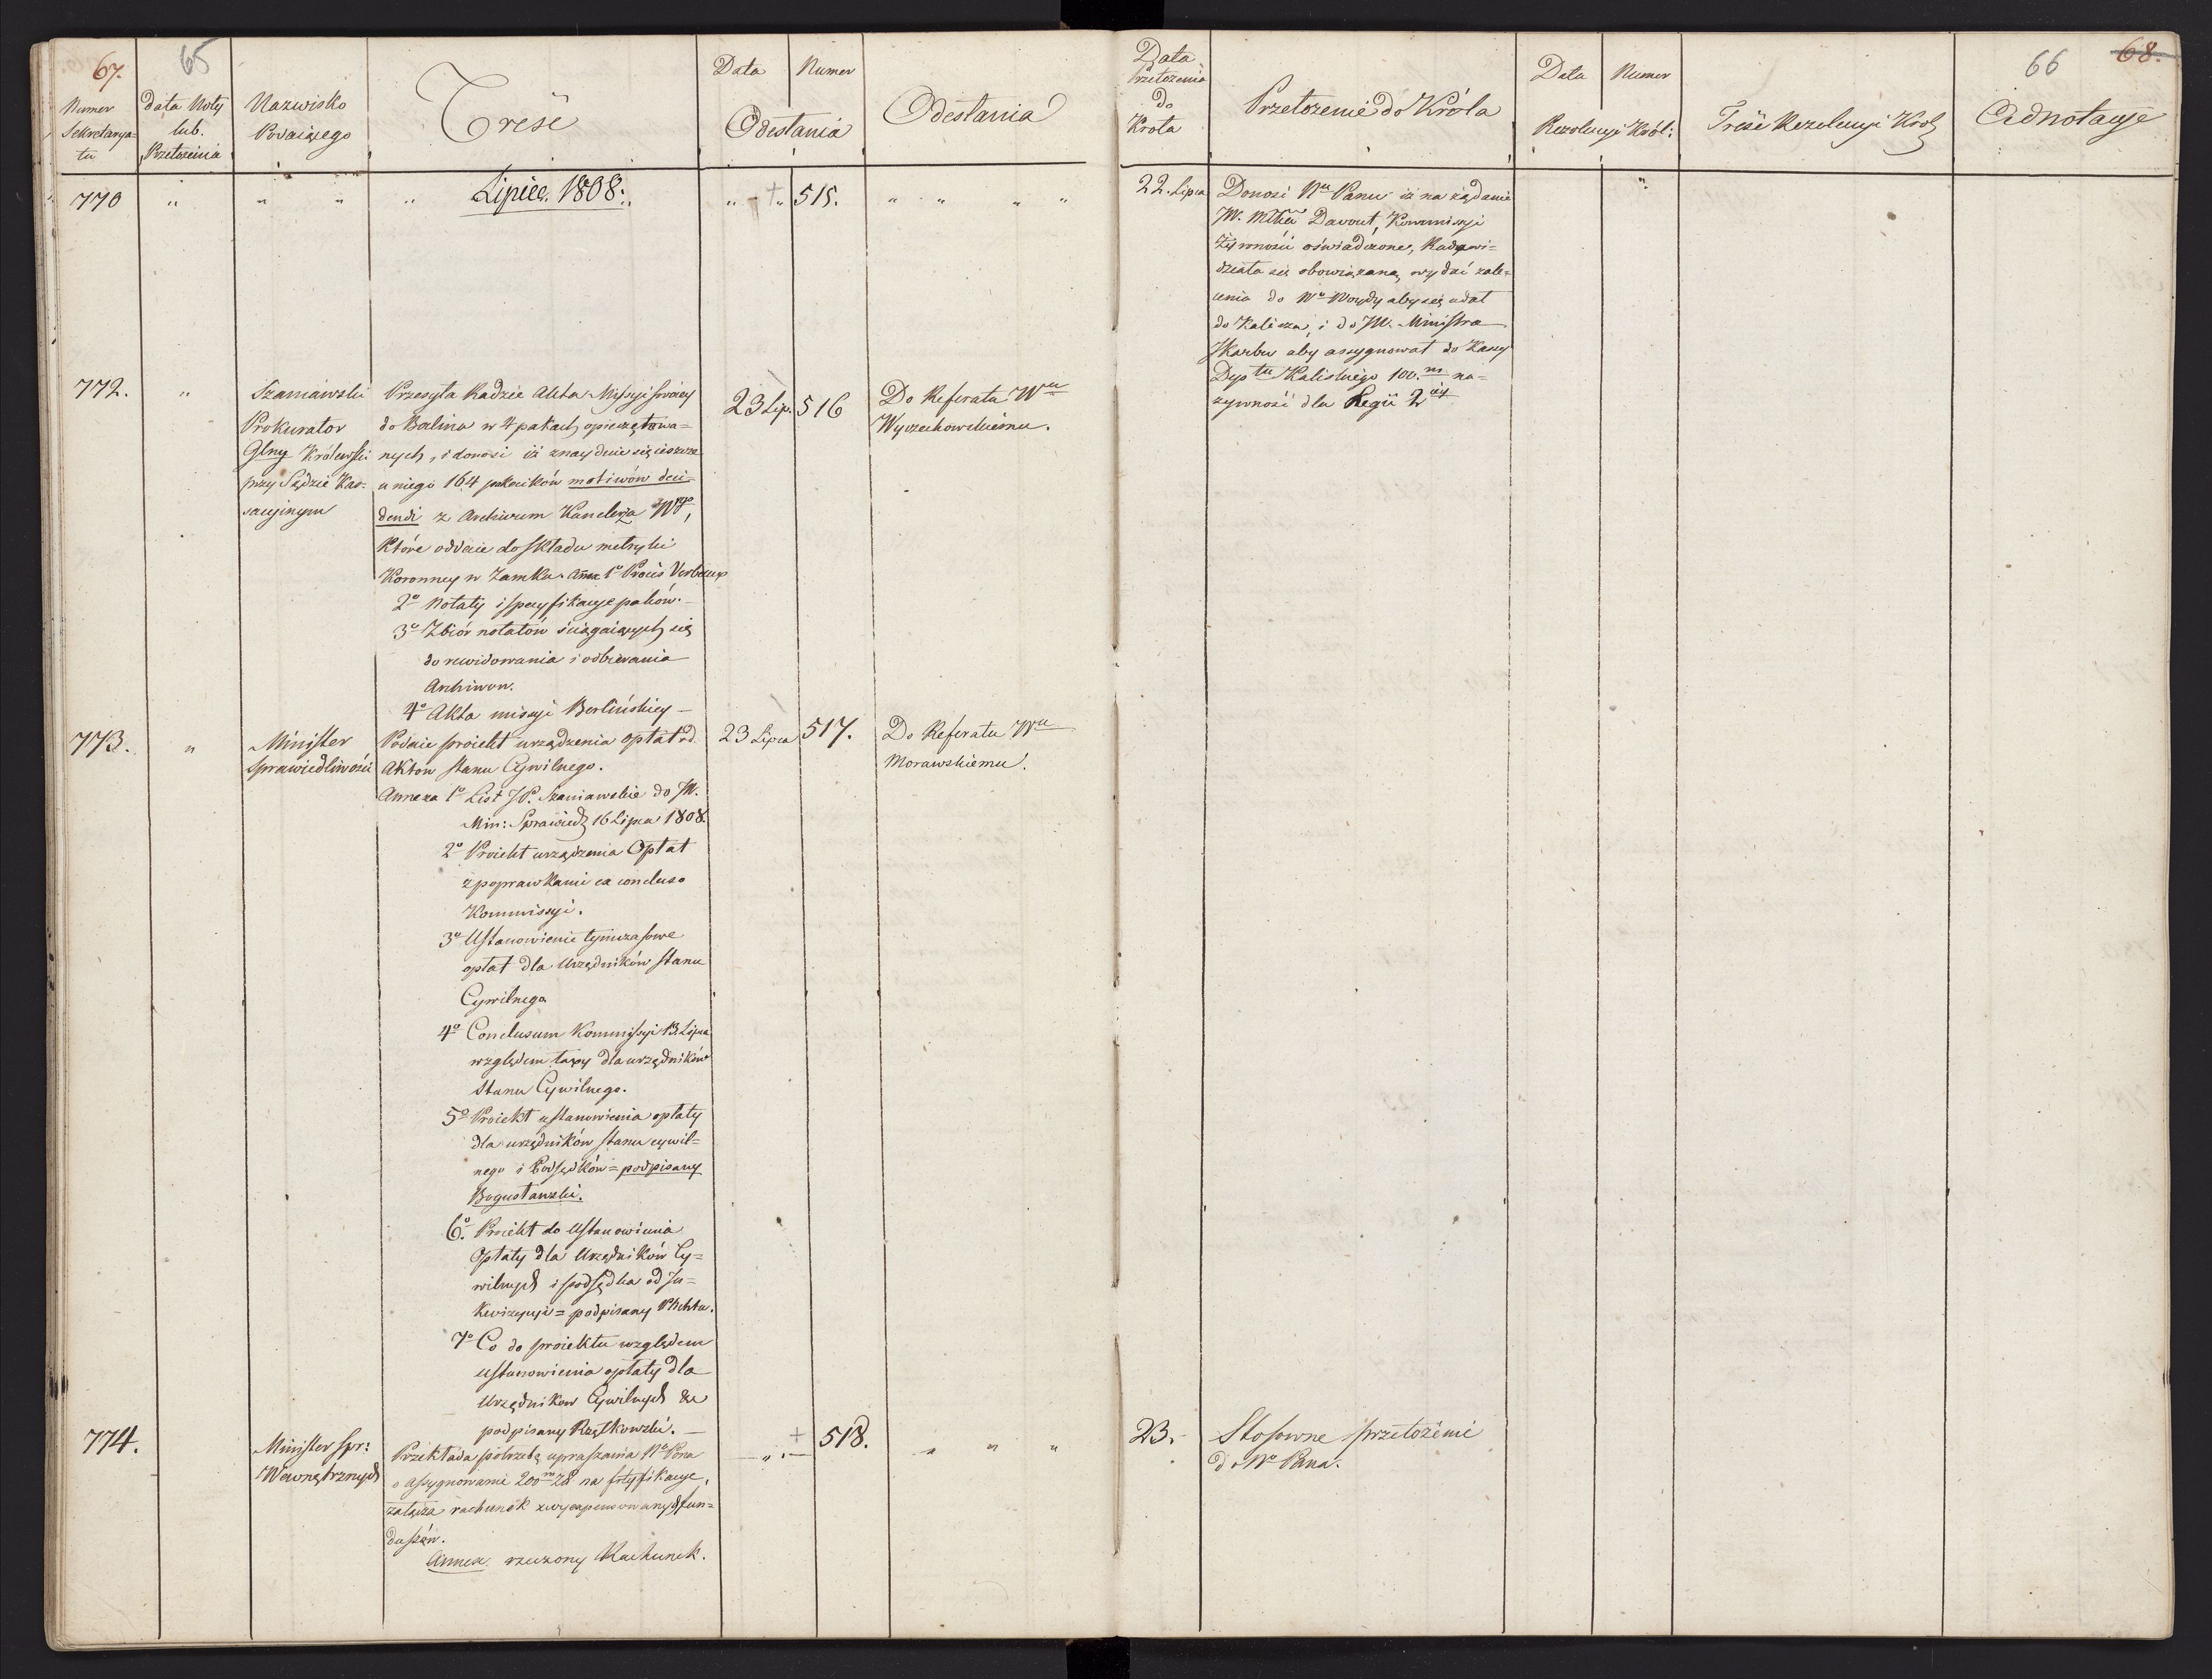 67.
65
Numer
Sekretarya=
tu
Data Noty
lub.
Przełożenia
Nazwisko
Podaiącego
Treść
Data
Numer
Odesłania
Odesłania
770
"
"
"
"
Lipiec. 1808.
" - "
515.
" " " "
772.
"
Szaniawski
Prokurator
Glny Królewski
przy Sądzie Kas=
sacyinym
Przesyła Radzie Akta Missyi swoiey
do Berlina w 4 pakach opieczętowa=
nych, i donosi iż znayduie się ieszcze
u niego 164 pakcików motiwów deci=
dendi z Archiwum Kanclerza
Które oddaie do składu metryki
Koronney w Zamku. Annex 1o Procès Verbaux
2o Notaty i specyfikacye paków.
3o Zbiór notatów ściągaiących się
do rewidowania i odbierania
Archiwow.
4o Akta missyi Berlińskiey
23 Lip.
516
Do Referatu Wu
Wyczechowskiemu.
773.
"
Minister
Sprawiedliwości
Podaie proiekt urządzenia opłat od
Aktow stanu Cywilnego.
Annexa 1o List JP. Szaniawskie do JW.
Min: Sprawiedl 16 Lipca 1808.
2o Proiekt urządzenia Opłat
z poprawkami ex concluso
Kommissyi.
3o Ustanowienie tymczasowe
opłat dla Urzędników stanu
Cywilnego
4o Conclusum Kommissyi 13. Lipca
względem taxy dla urzędników
Stanu Cywilnego.
5o Proiekt ustanowienia opłaty
dla urzędników stanu cywil=
nego i Podsędków = podpisany
Bogusławski.
6o Proiekt do Ustanowienia
Opłaty dla Urzędników Cy=
wilnych i podsędka od In=
kwizycyi = podpisany Plichta.
7o Co do proiektu względem
ustanowienia opłaty dla
Urzędnikow Cywilnych &c
podpisany Rzętkowski.
23 Lipca
517.
Do Referatu Wu
Morawskiemu.
774.
Minister Spr:
Wewnętrznych
Przekłada potrzebę upraszania No Pana
o assygnowanie 200m Zł na fortyfikacye,
załącza rachunek z wyexpensowanych fun=
duszów.
Annex. rzeczony Rachunek.
518.
" " "
66
68.
Data
Przełożenia
do
Króla
Przełożenie do Króla
Data
Numer
Rezolucyi Król:
Treść Rezolucyi Król
Adnotacye
22. Lipca
Donosi Nu Panu iż na żądanie
JW. Davout, Kommissyi
Żywności oświadczone, Rada wi=
działa się obowiązaną wydać zale=
cenia do Wo Woydy aby się udał
do Kalisza, i do JW. Ministra
Skarbu aby assygnował do Kassy
Dep tu Kaliskiego 100.m na=
żywność dla Legii 2éy
"
23.
Stosowne przełożenie
do No Pana.